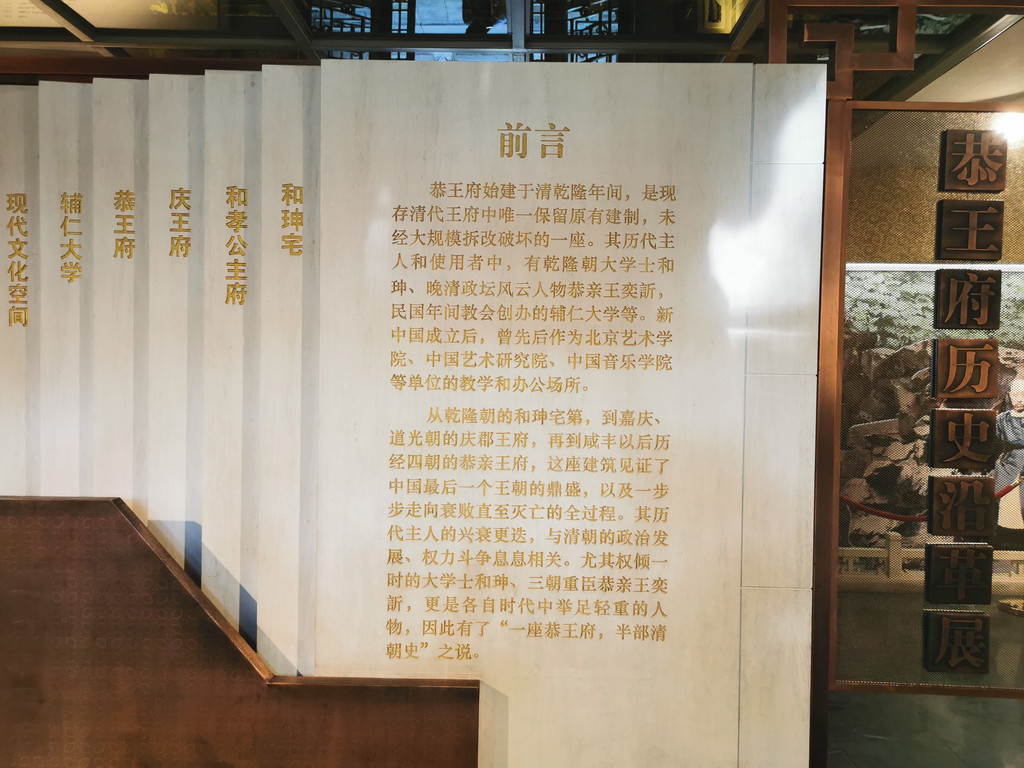 前言
恭王府始建于清乾隆年间，是现
存清代王府中唯一保留原有建制，未
经大规模拆改破坏的一座。其历代主
人和使用者中，有乾隆朝大学士和
珅、晚清政坛风云人物恭亲王奕訢，
民国年间教会创办的辅仁大学等。新
中国成立后，曾先后作为北京艺术学
院、中国艺术研究院、中国音乐学院
等单位的教学和办公场所。
从乾隆朝的和珅宅第，到嘉庆、
道光朝的庆郡王府，再到咸丰以后历
经四朝的恭亲王府，这座建筑见证了
中国最后一个王朝的鼎盛，以及一步
步走向衰败直至灭亡的全过程。其历
代主人的兴衰更迭，与清朝的政治发
展、权力斗争息息相关。尤其权倾一
时的大学士和珅、三朝重臣恭亲王奕
訢，更是各自时代中举足轻重的人
物，因此有了“一座恭王府，半部清
朝史”之说。
和珅宅
和孝公主府
庆王府
恭王府
辅仁大学
现代文化空间
恭王府历史沿革展